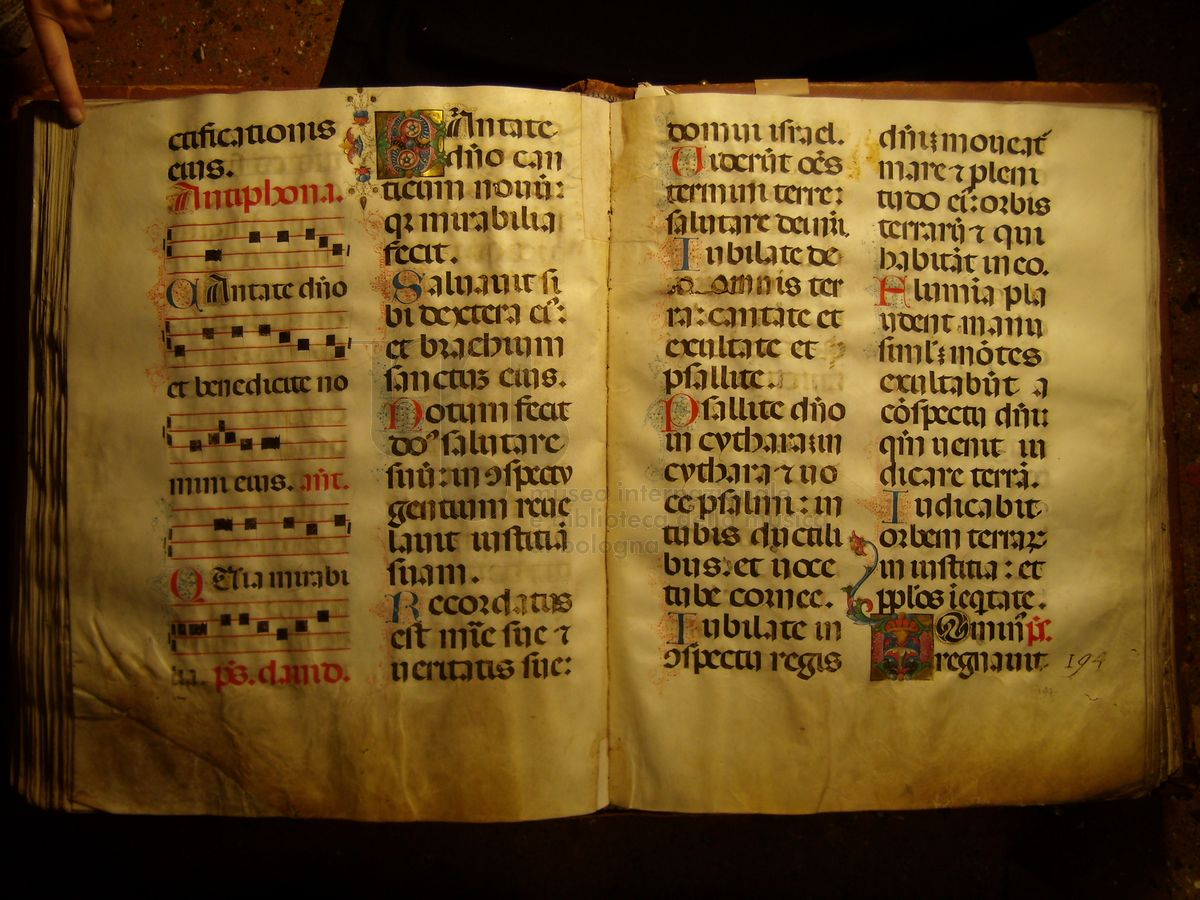 ctificationis
eius.
Antiphona.
Cantate dn̄o
et benedicite no
mini eius. an̄t.
Quia mirabi
lia. ps̄. dauid.
Cantate
dn̄o can
ticum nouū:
qꝛ mirabilia
fecit.
Saluauit si
bi dextera eiꝰ:
et brachium
sanctuȝ eius.
Notum fecit
doꝰ salutare
suū: in ↄspectu
gentium reue
lauit iustitiā
suam.
Recordatus
est mīe sue ⁊
ueritatis sue:
domui israel.
Uiderūt oēs
termini terre:
salutare dei nr̄i.
Iubilate de
o omnis ter
ra: cantate et
exultate et
psallite.
Psallite dn̄o
in cythara: in
cythara ⁊ uo
ce psalmi: in
tubis ductili
bus: et uoce
tube cornee.
Iubilate in
ↄspectu regis
dn̄i: moueat̄
mare ⁊ pleni
tudo eiꝰ: orbis
terrarū ⁊ qui
habitāt in eo.
Flumīa pla
udent manu
siml̄: mōtes
exultabūt a
cōspectu dn̄i:
qm̄ uenit iu
dicare terrā.
Iudicabit
orbem terrarꝝ
in iustitia: et
ppl̄os ī eq̄tate.
Dominꝰ ps̄.
regnauit
194
museo internazionale
e biblioteca della musica
bologna